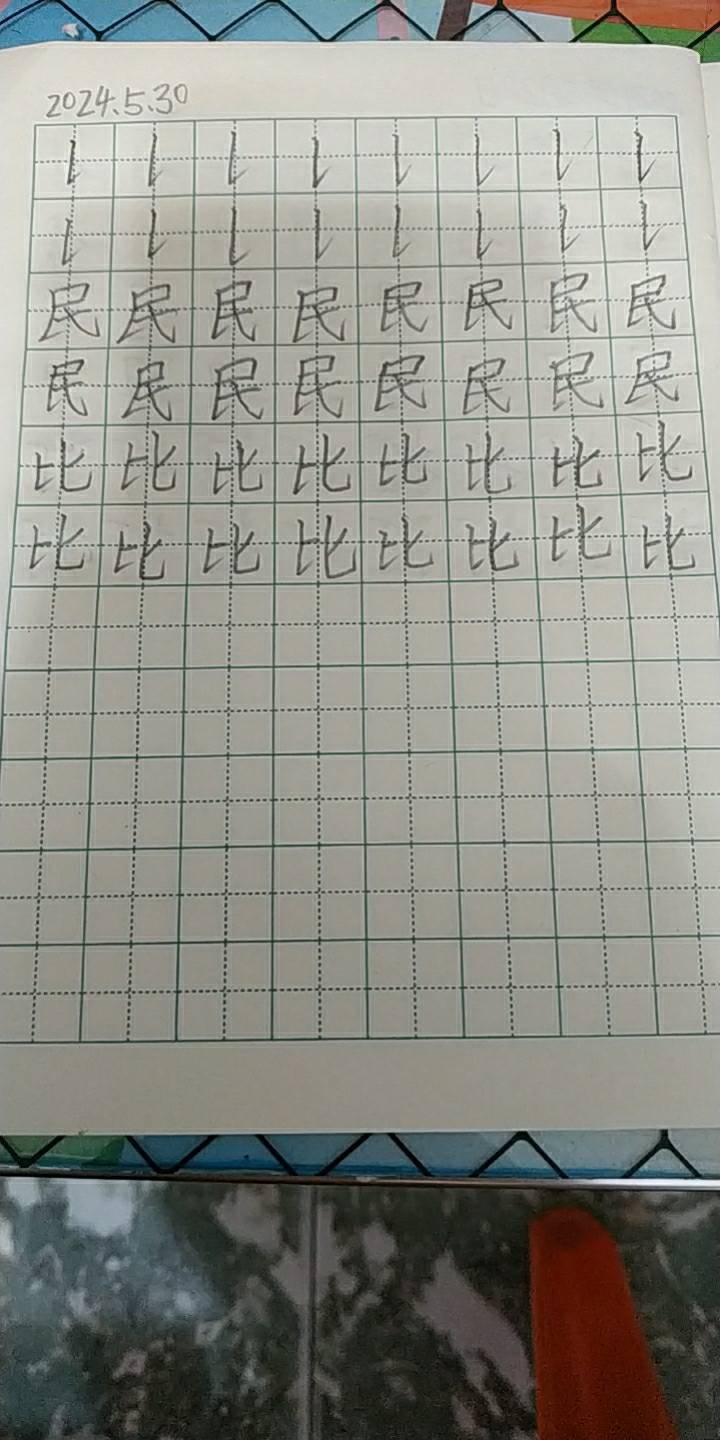 2024.5.30
𠄌 𠄌 𠄌 𠄌 𠄌 𠄌 𠄌 𠄌
𠄌 𠄌 𠄌 𠄌 𠄌 𠄌 𠄌 𠄌
民 民 民 民 民 民 民 民
民 民 民 民 民 民 民 民
比 比 比 比 比 比 比 比
比 比 比 比 比 比 比 比